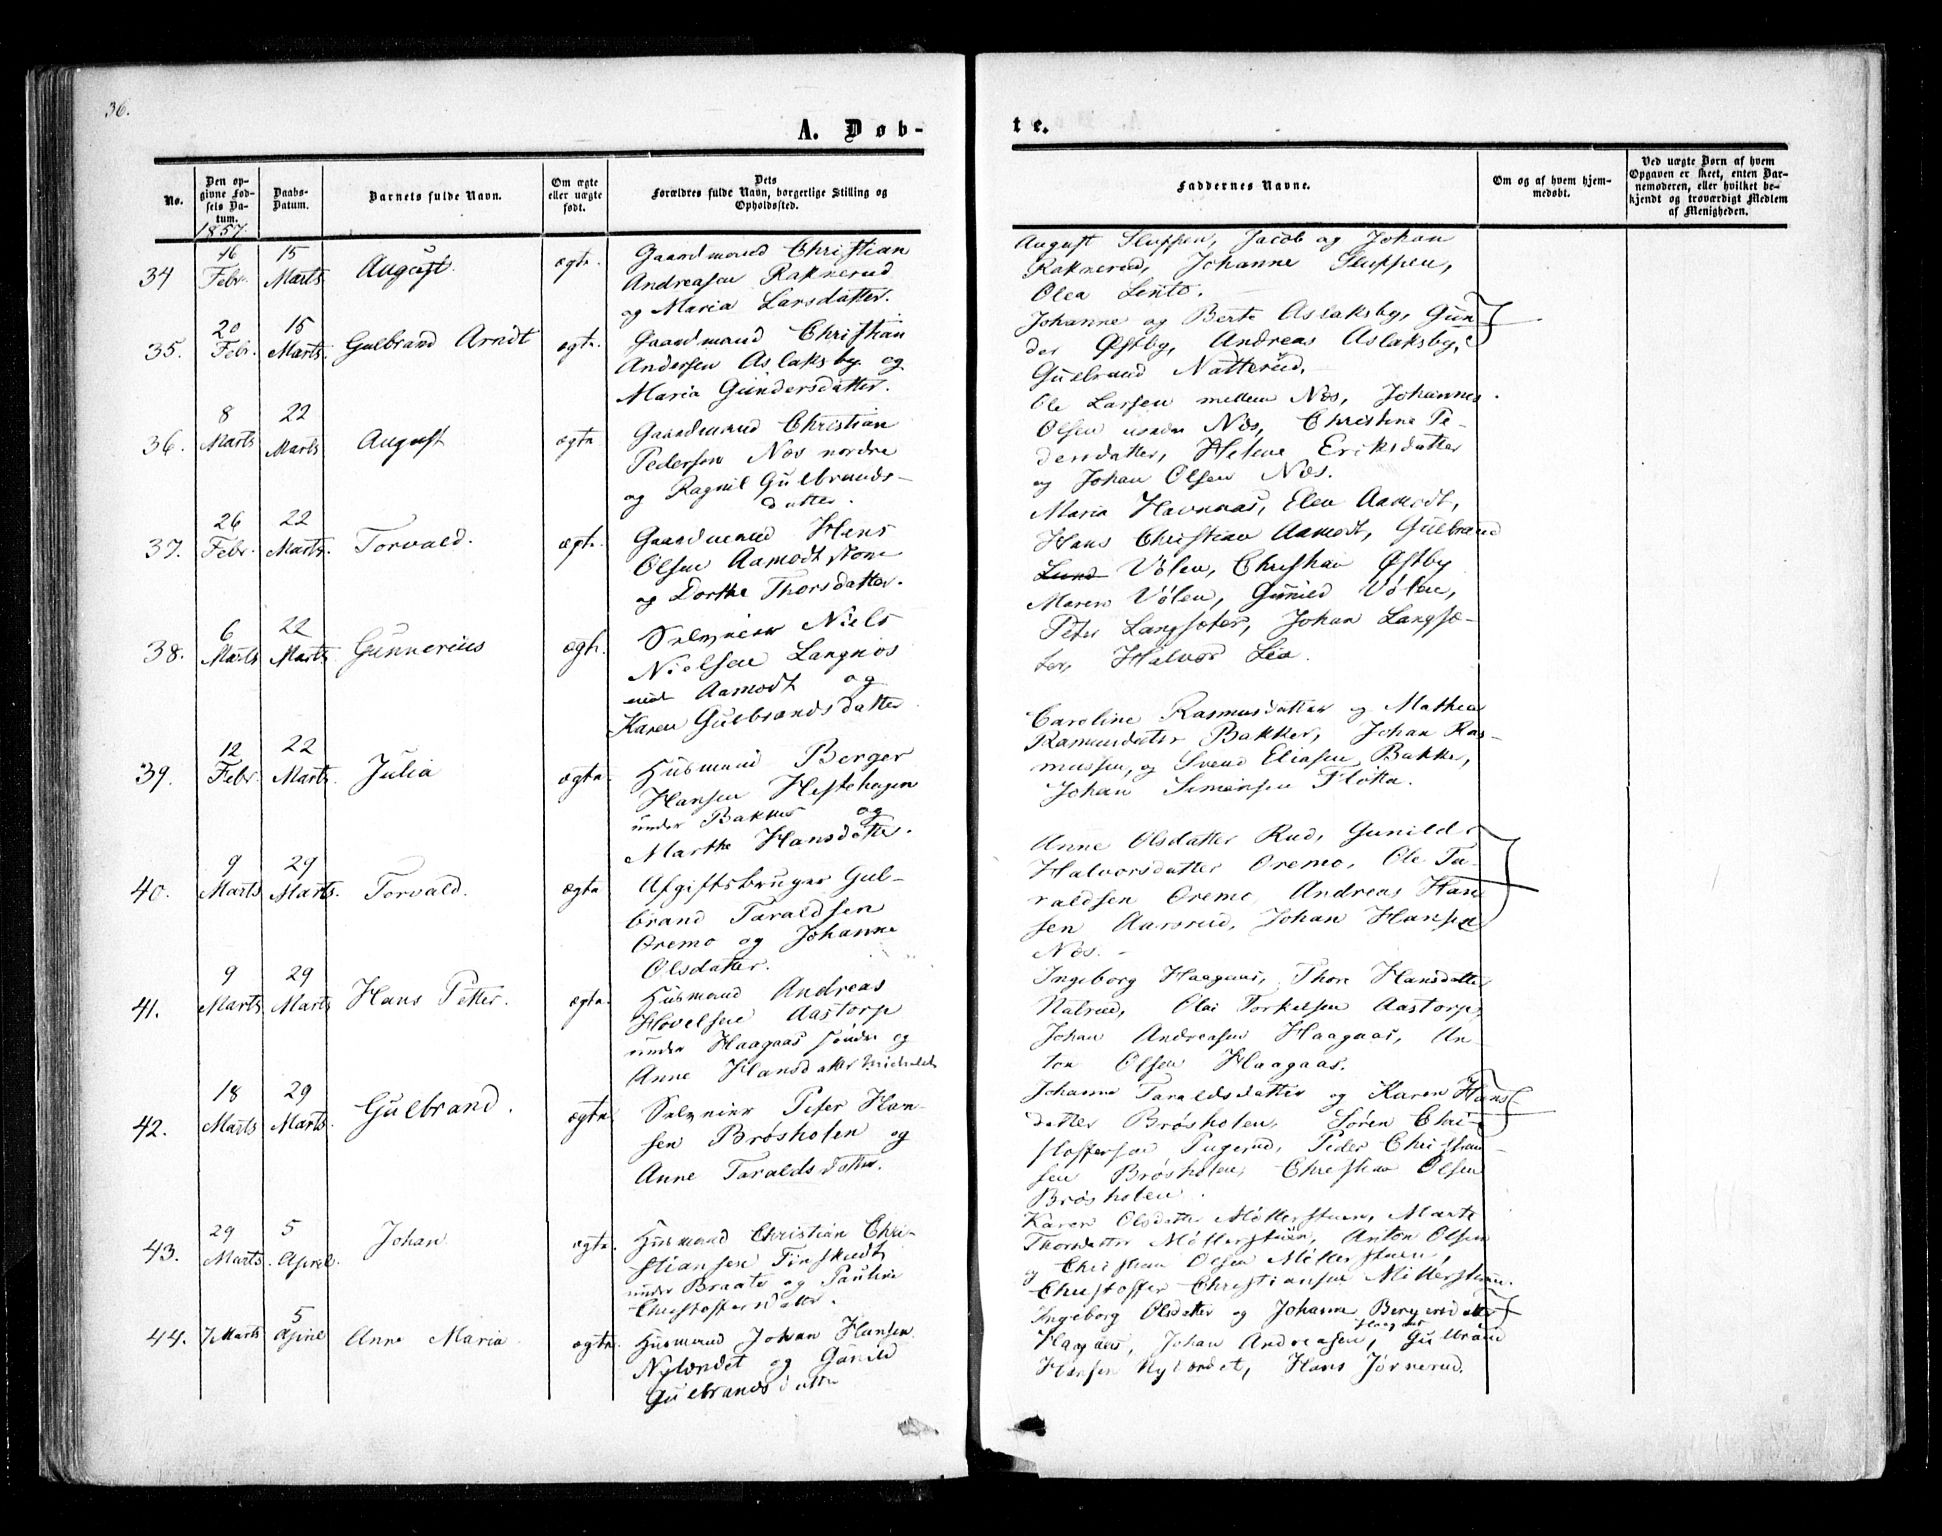 36.
A. Døb-
te.
No.
Den op-
givne Fød-
sels Da-
tum.
1857.
Daabs-
Datum.
Barnets fulde Navn.
Om ægte
eller uægte
født.
Dets
Forældres fulde Navn, borgerlige Stilling og
Opholdssted.
Faddernes Navne.
Om og af hvem hjem-
medøbt.
Ved uægte Børn af hvem
Opgaven er skeet, enten Bar-
nemoderen, eller hvilket be-
kjendt og troværdigt Medlem
af Menigheden.
34
16
Febr.
15
Marts
August.
ægte.
Gaardmand Christian
Andreasen Raknerud
og Maria Larsdatter.
August Sluppen, Jacob og Johan
Raknerud, Johanne Sluppen,
Olea Lento.
35.
20
Febr.
15
Marts.
Gulbrand Arndt
ægte.
Gaardmand Christian
Andersen Aslaksby og
Maria Gundersdatter.
Johanne og Berte Aslaksby, Gun
der Østby, Andreas Aslaksby,
Gulbrand Natterud.
36.
8
Marts
22
Marts
August
ægte
Gaardmand Christian
Pedersen Næs nordre
og Ragnil Gulbrands-
datter.
Ole Larsen mellem Næs, Johannes
Olsen nordre Næs, Christine Pe-
dersdatter, Helene Eriksdatter
og Johan Olsen Næs.
37.
26
Febr.
22
Marts.
Torvald.
ægte.
Gaardmand Hans
Olsen Aamodt store
og Dorthe Thorsdatter.
Maria Havnaas, Elen Aamodt,
Hans Christian Aamodt, Gulbrand
Lund Volen, Christian Østby
38.
6
Marts
22
Marts
Gunnerius
ægte.
Selveier Niels
Nielsen Langnos
Aamodt og
Karen Gulbrandsdatter
Maren Volen, Gunild Volen,
Peter Langseter, Johan Langsæ-
ter, Halvor Lia.
39.
12
Febr.
22
Marts.
Julia
ægte.
Husmand Berger
Hansen Hestehagen
under Bakker og
Marthe Hansdatter.
Caroline Rasmusdatter og Mathea
Ramusdatter Bakker, Johan Ras-
mussen, og Svend Eliasen Bakke,
Johan Simensen Flotta.
40.
9
Marts
29
Marts.
Torvald.
ægte
Afgiftsbruger Gul-
brand Taraldsen
Oremo og Johanne
Olsdatter.
Anne Olsdatter Rud, Gunild
Halvorsdatter Oremo, Ole Ta-
raldsen Oremo, Andreas Han
sen Aarsrud, Johan Hansen
Næs.
41.
9
Marts
29
Marts
Hans Petter.
ægte
Husmand Andreas
Hovelsen Aastorp
under Haagaas søndre og
Anne Hansdatter
Ingeborg Haagaas, Thore Hansdatter
Nalrud, Olai Torkelsen Aastorp,
Johan Andreasen Haagaas, An-
ton Olsen Haagaas.
42.
18
Marts
29
Marts.
Gulbrand.
ægte
Selveier Peter Han-
sen Brøsholen og
Anne Taraldsdatter.
Johanne Taraldsdatter og Karen Hans
datter Brøsholen, Søren Chri-
stoffersen Pugerud, Peder Christian-
sen Brøsholen, Christian Olsen
Brøsholen.
43.
29
Marts
5
April.
Johan
ægte.
Husmand Christian Chri-
stiansen Finskudt
under Braate og Pauline
Christoffersdatter.
Karen Olsdatter Møllerstuen, Marte
Thorsdatter Møllerstuen, Anton Olsen
og Christian Olsen Møllerstuen,
Christoffer Christiansen Møllerstuen.
44.
7 Marts
5
April
Anne Maria.
ægte.
Husmand Johan Hansen
Nylændet og Gunild
Gulbrandsdatter
Ingeborg Olsdatter og Johanne Bergersdatter
Haagaas, Johan Andreasen Haagaas, Gulbrand
Hansen Nylændet, Hans Jørnerud.